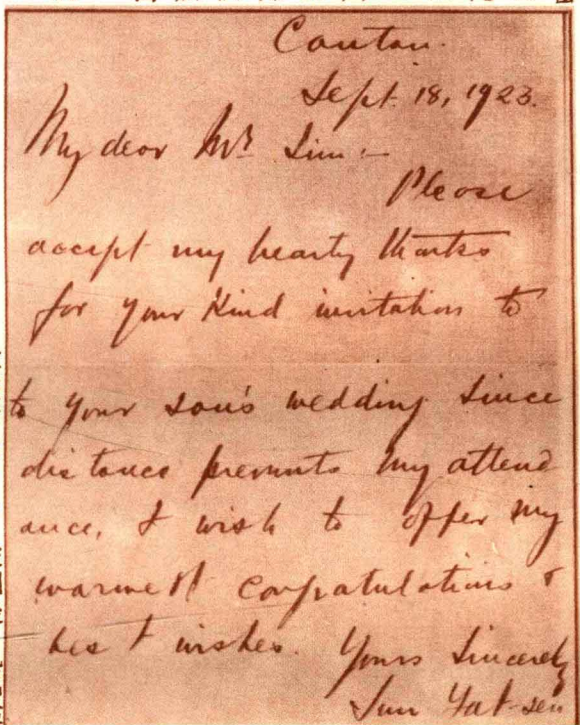 Canton.
Sept. 18, 1923.
My dear Mr. Lim:-
Please
accept my hearty thanks
for your kind invitation to
to your son's wedding Since
distance prevents my attend
ance, I wish to offer my
warmest congratulations &
best wishes. Yours Sincerely
Sun Yat-sen